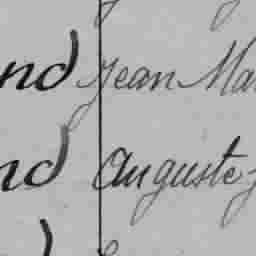 nd Jean Ma
nd Auguste